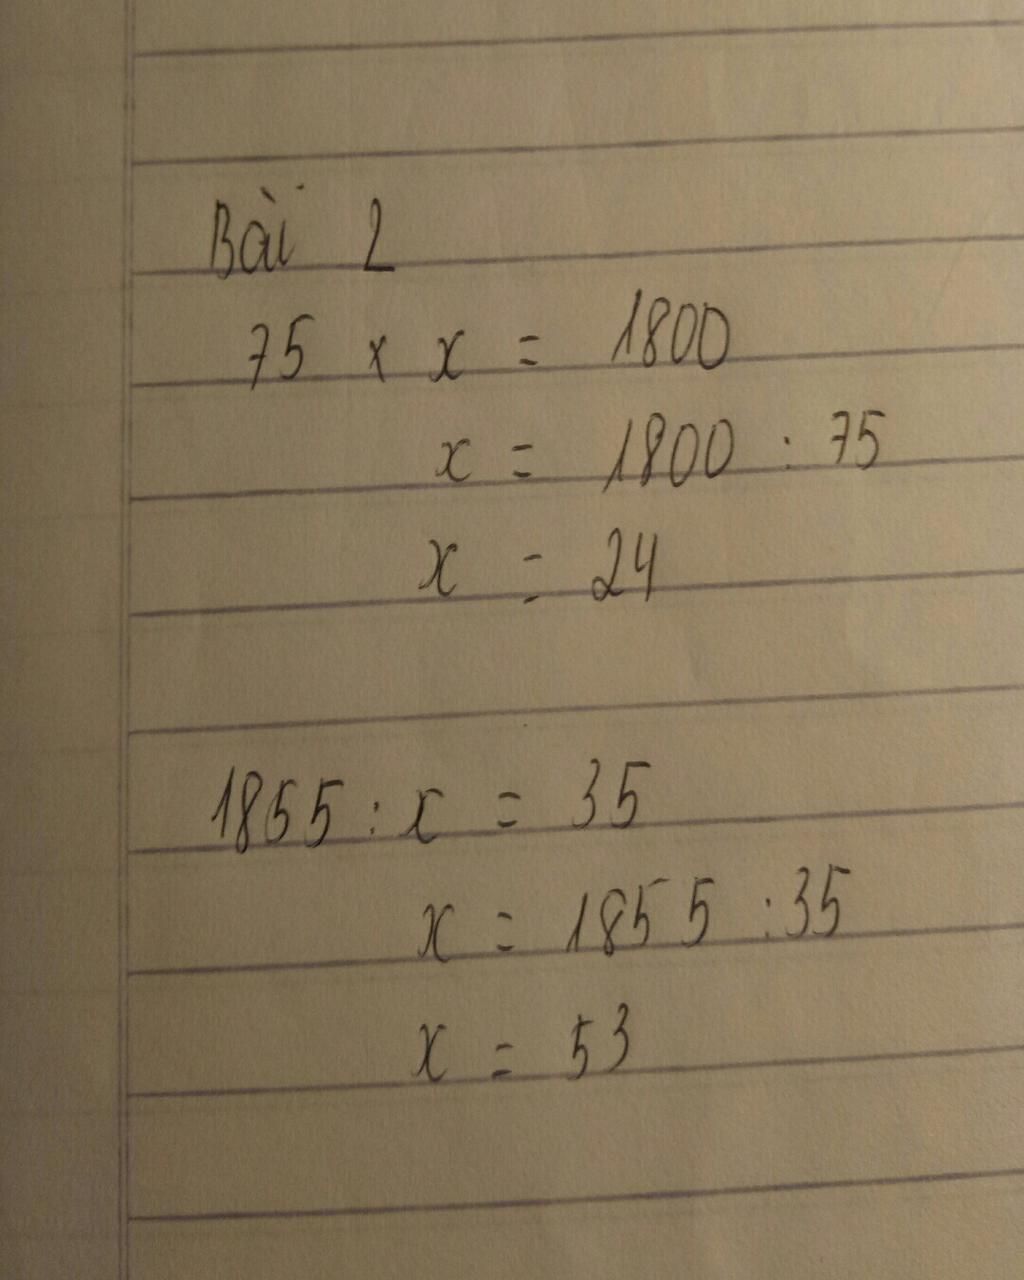 Bài 2
75 x x = 1800
x = 1800 : 75
x = 24
1855 : x = 35
x = 1855 : 35
x = 53